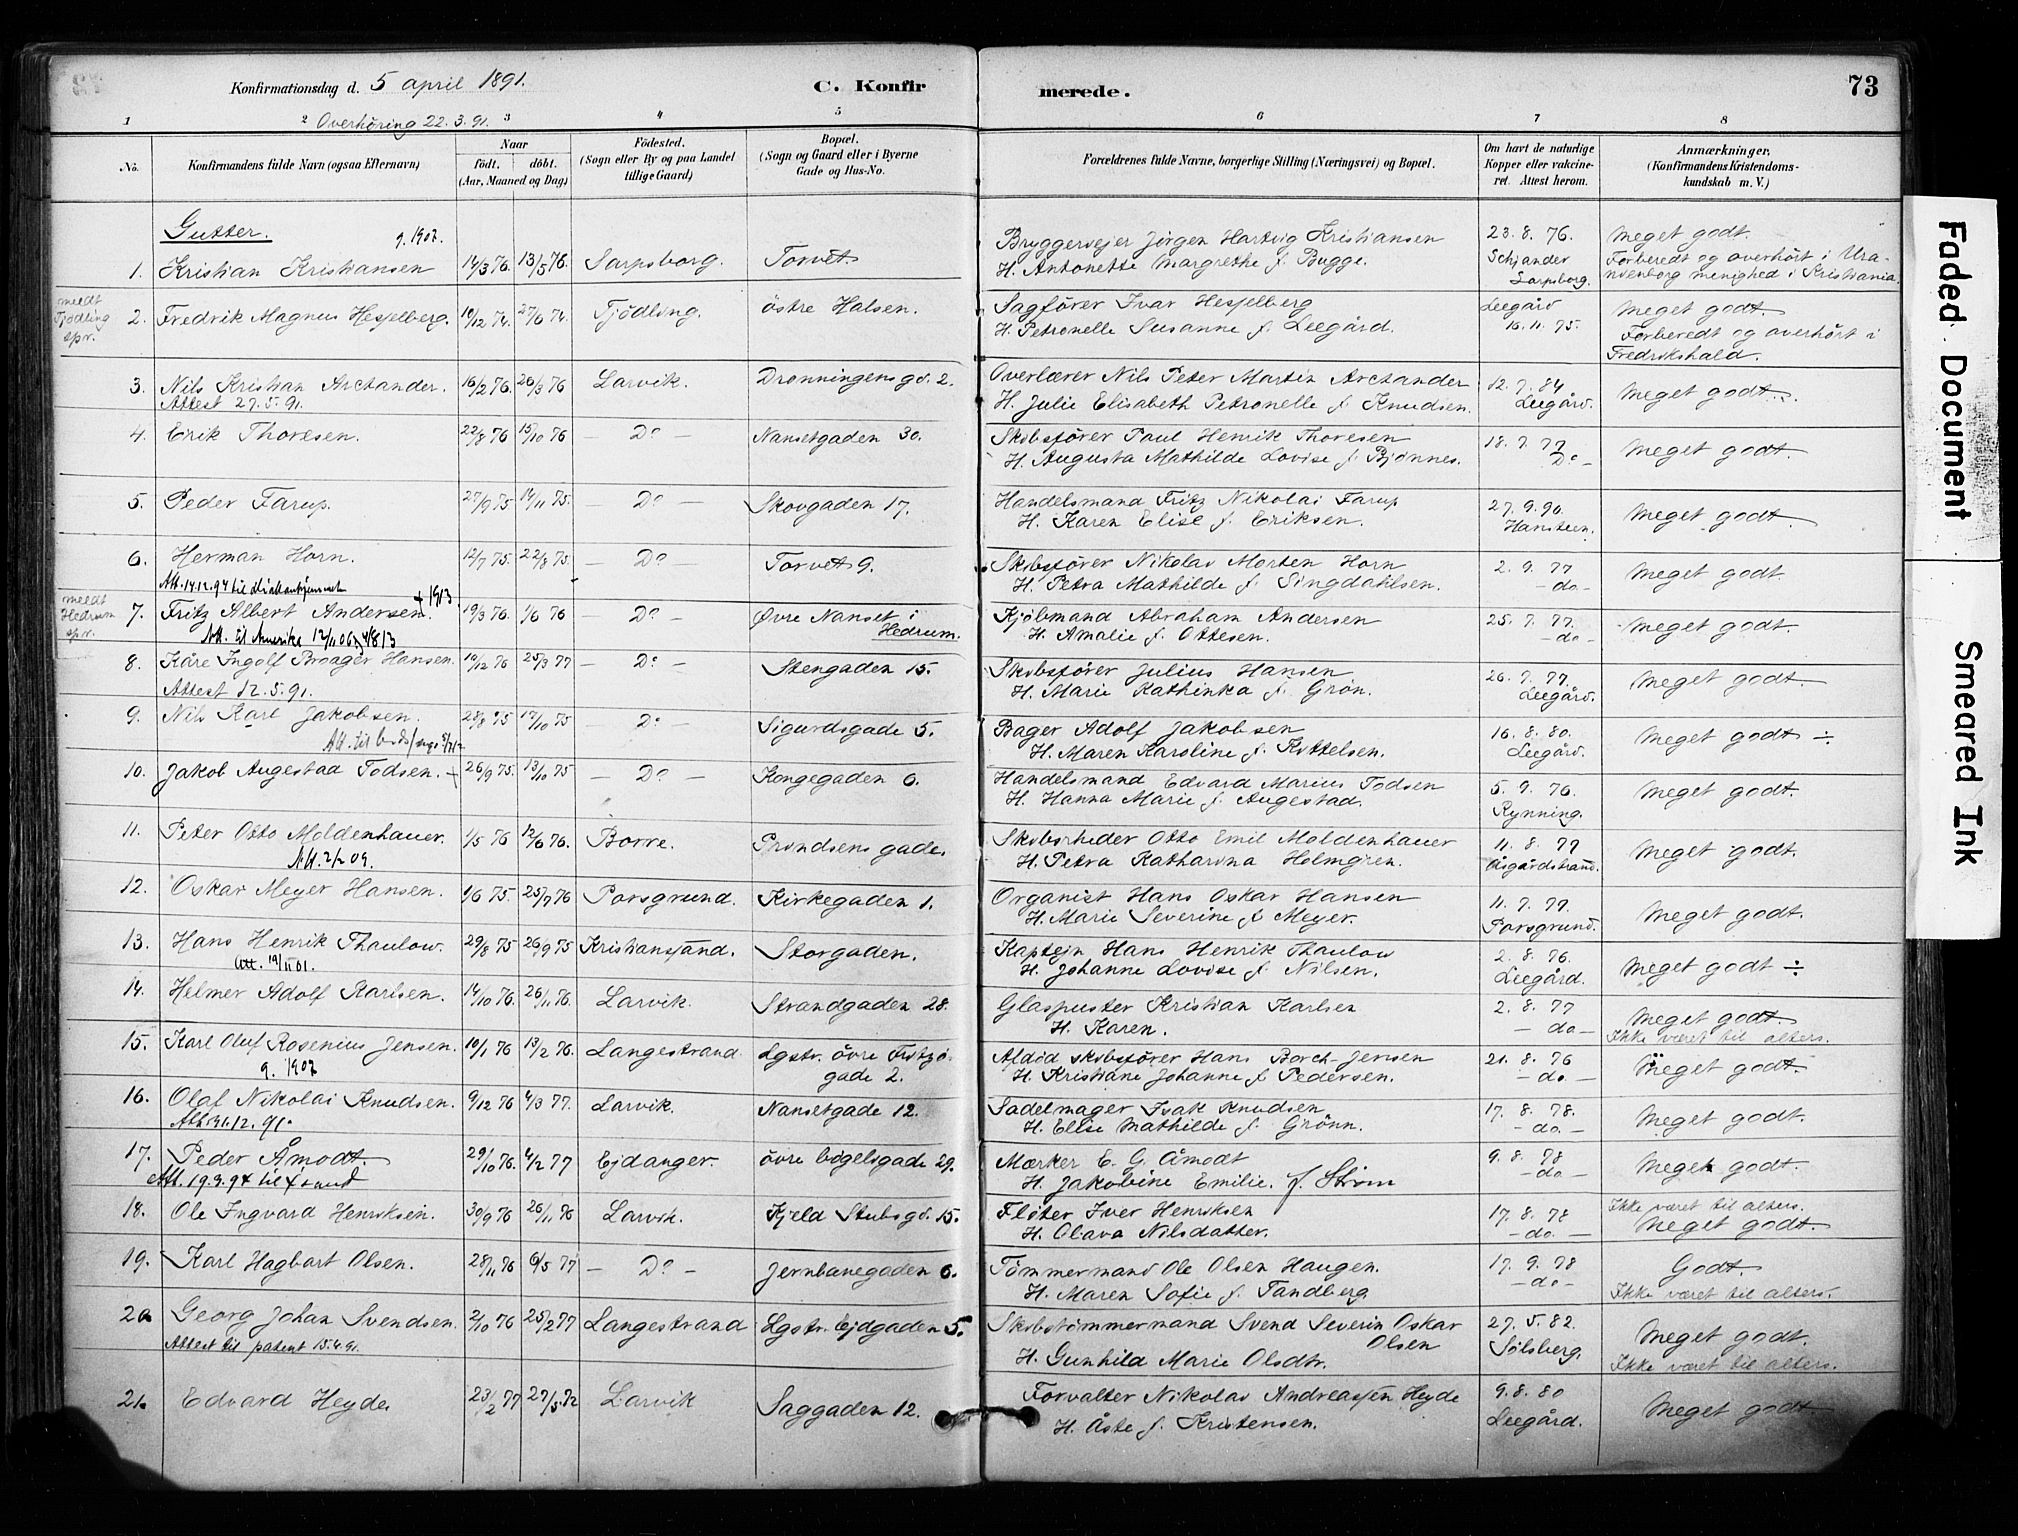 Konfirmationsdag d. 5 april 1891.
C. Konfirmerede.
73
Overhøring 22.3.91.
1 2 3 4 5 6 7 8
No.
Konfirmandens fulde Navn (ogsaa Efternavn)
Naar
født, døbt.
(Aar, Maaned og Dag)
Fødested.
(Sogn eller By og paa Landet
tillige Gaard)
Bopæl.
(Sogn og Gaard eller i Byerne
Gade og Hus-No.
Forældrenes fulde Navne, borgerlige Stilling (Næringsvei) og Bopæl.
Om havt de naturlige
Kopper eller vakcine-
ret. Attest herom.
Anmærkninger,
(Konfirmandens Kristendoms-
kundskab m. V.)
Gutter.
g. 1902.
1. Kristian Kristiansen 14/3 76. 13/5 76. Sarpsborg. Torvet. Bryggerejer Jørgen Hartvig Kristiansen 23. 8. 76. Meget godt.
H. Antonette Margrethe f. Bugge. Schjander Sarpsborg. Forberedt og overhørt i Ura-
nienborg menighed i Kristiania.
meldt Tjødling spr.
2. Fredrik Magnus Hesselberg. 10/12 74. 27/6 74. Tjødling. østre Halsen. Sagfører Ivar Hesselberg Leegård Meget godt.
H. Petronelle Susanne f. Leegård. 16. 11. 75. Forberedt og overhørt i
Fredrikshald.
3. Nils Kristian Arctander. 16/2 76. 26/3 76 Larvik. Dronningensgd. 2. Overlærer Nils Peter Martin Arctander 12. 7. 84 Meget godt.
Attest 27. 5. 91. H. Julie Elisabeth Petronelle f. Knudsen. Leegård.
4. Erik Thoresen. 22/8 76 15/10 76 — Do — Nansetgaden 30. Skibsfører Paul Henrik Thoresen 18. 7. 77 Meget godt.
H. Augusta Mathilde Lovise f. Bjønnes. Do —
5. Peder Farup. 27/9 75 14/11 75. — Do — Skovgaden 17. Handelsmand Fritz Nikolai Farup 27. 9. 90. Meget godt.
H. Karen Elise f. Eriksen. Hansteen.
6. Herman Horn. 12/7 75. 22/8 75. — Do Torvet 9. Skibsfører Nikolai Morten Horn 2. 9. 77 Meget godt
Att. 14.12.94 til H. Petra Mathilde f. Singdahlsen. — do —
meldt Hedrum spr.
7. Fritz Albert Andersen. + 1913 19/3 76. 1/6 76 — Do — Øvre Nanset i Hedrum. Kjøbmand Abraham Andersen 25. 7. 77. Meget godt.
Att. til Amerika 12/11 06, 4/8 13 H. Amalie f. Ottesen. — do —
8. Kåre Ingolf Broager Hansen. 10/12 76 25/3 77 — Do — Stengaden 15. Skibsfører Julius Hansen 26. 7. 77. Meget godt.
Attest 12. 5. 91. H. Marie Kathinka f. Grön. Leegård.
9. Nils Karl Jakobsen. 28/8 75 17/10 75 — Do — Sigurdsgade 5. Bager Adolf Jakobsen 16. 8. 80. Meget godt ÷
Att. til H. Maren Karoline f. Kittelsen. Leegård.
10. Jakob Augestad Todsen. + 26/9 75. 13/10 75 — Do — Kongegaden 6. Handelsmand Edvard Marius Todsen 5. 9. 76. Meget godt.
H. Hanna Marie f. Augestad. Rynning.
11. Peter Otto Moldenhauer. 1/5 76 12/6 76. Borre. Prindsens gade. Skibsrheder Otto Emil Moldenhauer 11. 8. 77 Meget godt.
Att. 2/2 09. H. Petra Katharina Holmgren. Åsgårdstrand.
12. Oskar Meyer Hansen. 1/6 75. 25/7 76 Porsgrund. Kirkegaden 1. Organist Hans Oskar Hansen 11. 7. 77. Meget godt.
H. Marie Severine f. Meyer. Porsgrund.
13. Hans Henrik Thaulow. 29/8 75 26/9 75 Kristiansand. Storgaden. Kaptejn Hans Henrik Thaulow 2. 8. 76. Meget godt ÷
Att. 19/11 01. H. Johanne Lovise f. Nilsen. Leegård.
14. Helmer Adolf Karlsen. 14/10 76. 26/11 76. Larvik. Strandgaden 28. Glaspuster Kristian Karlsen 2. 8. 77 Meget godt.
H. Karen. — do — Ikke været til alters.
15. Karl Oluf Rosenius Jensen. 10/1 76 13/2 76. Langestrand. Lgstr. øvre Fritzø-
gade 2. Afdød skibsfører Hans Borch Jensen 21. 8. 76 Meget godt.
g. 1902 H. Kristiane Johanne f. Pedersen. — do. —
16. Olaf Nikolai Knudsen. 9/12 76 4/3 77. Larvik. Nansetgade 12. Sadelmager Isak Knudsen 17. 8. 78. Meget godt.
Att. 31.12. 91. H. Elise Mathilde f. Grönn. — do. —
17. Peder Åmodt. 29/10 76. 4/2 77 Ejdanger. øvre Bøgelsgade 29. Mærker E. G. Åmodt 9. 8. 78 Meget godt.
Att. 19.3.94 til H. Jakobine Emilie. f. Strøm — do —
18. Ole Ingvard Henriksen. 30/9 76 26/11 76 Larvik. Kjeld Stubsgd. 15. Fløter Iver Henriksen 17. 8. 78 Ikke været til alters.
H. Olava Nilsdatter. — do. — Meget godt.
19. Karl Hagbart Olsen. 28/11 76 6/5 77 — Do — Jernbanegaden 6. Tømmermand Ole Olsen Haugen. 17. 9. 78 Godt.
H. Maren Sofie f. Tandberg — do — Ikke været til alters.
20. Georg Johan Svendsen. 2/10 76 25/2 77 Langestrand Lgstr. Ejdgaden 5. Skibstømmermand Svend Severin Oskar Olsen 27. 5. 82. Meget godt.
Attest til patent 15.4.91. H. Gunhild Marie Olsdtr. Solsberg. Ikke været til alters.
21. Edvard Heyde. 23/2 77 27/5 72 Larvik Saggaden 12. Forvalter Nikolai Andreassen Heyde 9. 8. 80 Meget godt.
H. Åste f. Kristensen. Leegård.
Faded Document
Smeared Ink